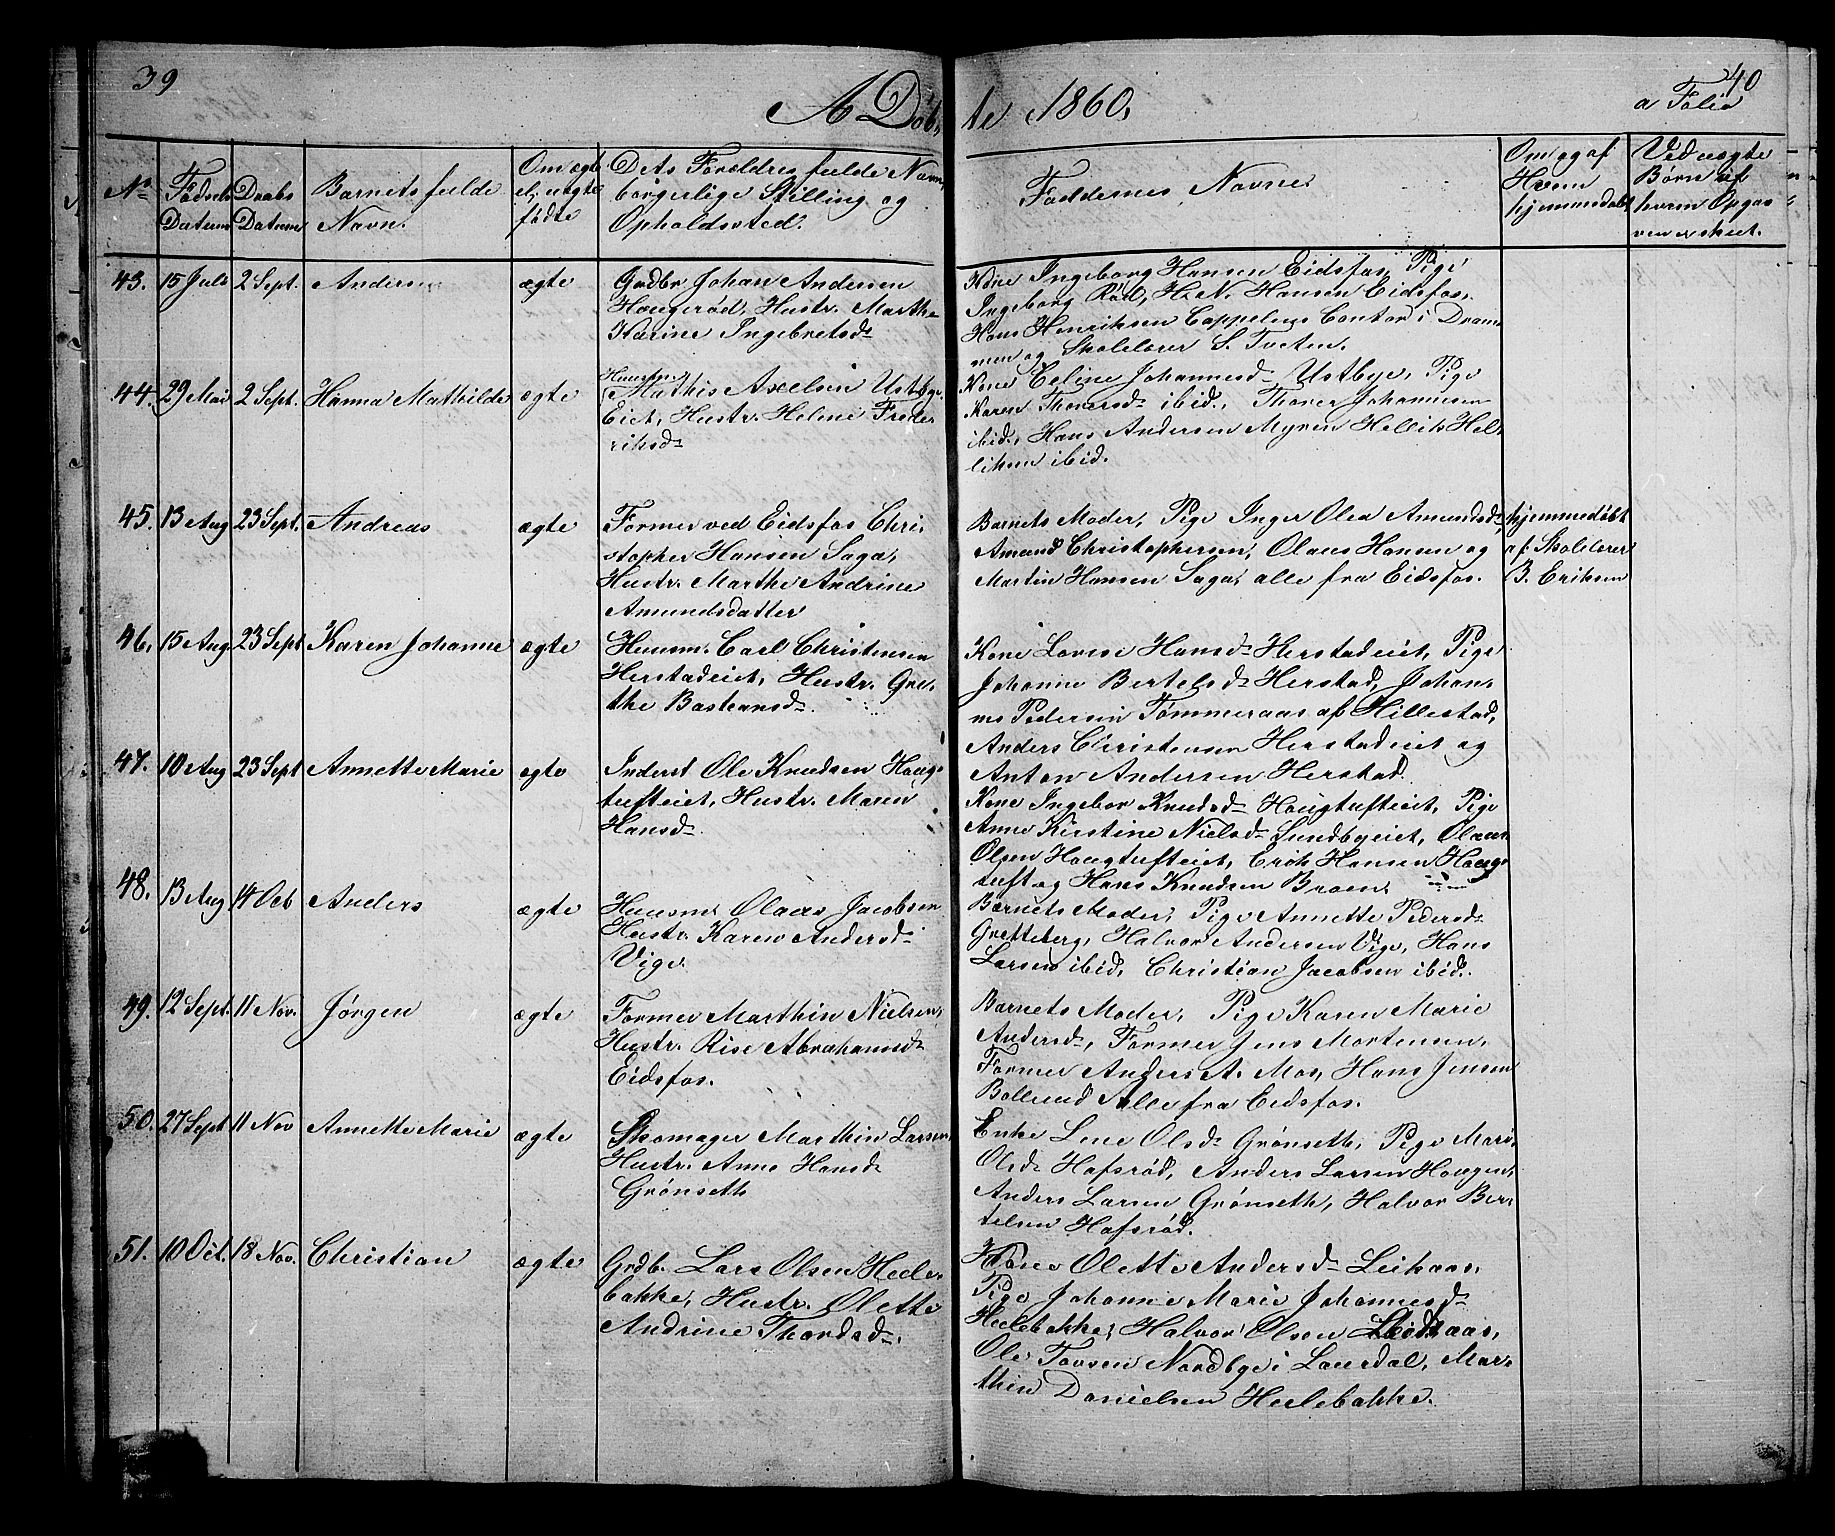 39
A Døb,
te 1860,
40
a Folio
No
Fødsels Datum
Daabs Datum
Barnets fulde Navn.
Om ægte el. uægte fødte
Dets Forældres fulde Navn, borgerlige Stilling og Opholdssted.
Faddernes Navne.
Om og af Hvem hjemmedøbt
Ved uægte Børn af hvem Opgaven er skeet.
43. 15 Juli 2 Sept. Anders ægte Grdbr Johan Andersen
Haugerød, Hustr. Marthe
Karine Ingebretsd
Kone Ingeborg Hansen Eidsfos, Pige
Ingeborg Rød, H. N. Hansen Eidsfos,
Hans Henriksen Cappelens Contor i Dram-
men og Skolelærer S. Tveten.
44. 29 Mai 2 Sept. Hanna Mathilde ægte Huusm
Mathis Axelsen Ustbye
Eiet, Hustr. Helene Frede-
riksd
Kone Celine Johannesd Ustbye, Pige
Karen Thoversd ibid., Thover Johannesen
ibid., Hans Andersen Myren Hellik Hel-
liksen ibid.
45. 13 Aug 23 Sept. Andreas ægte Former ved Eidsfos Chri-
stopher Hansen Saga,
Hustr. Marthe Andrine
Amundsdatter
Barnets Moder, Pige Inger Olea Amundsd,
Amund Christophersen, Olaus Hansen og
Martin Hansen Saga, alle fra Eidsfos.
hjemmedøbt
af Skolelærer
B. Eriksen
46. 15 Aug 23 Sept Karen Johanne ægte Huusm. Carl Christensen
Herstadeiet, Hustr. Gre-
the Bastiansd
Kone Lovise Hansd Herstadeiet, Pige
Johanne Bertelsd Herstad, Johan-
nes Pedersen Tømmeraas af Hillestad,
Anders Christensen Herstadeiet og
Anton Andersen Herstad.
47. 10 Aug 23 Sept Annette Marie ægte Inderst Ole Knudsen Houg-
tufteiet, Hustr. Maren
Hansd
Kone Ingebor Knudsd Hougtufteiet, Pige
Anne Kirstine Nielsd Sundbyeiet, Olaus
Olsen Hougtufteiet, Erik Hansen Houg-
tuft og Hans Knudsen Broen.
48. 13 Aug 14 Oct Anders ægte Huusm. Olaus Jacobsen
Hustr. Karen Andersd
Vige.
Barnets Moder, Pige Annette Pedersd
Gretteberg, Halvor Andersen Vige, Hans
Larsen ibid, Christian Jacobsen ibid.
49. 12 Sept. 11 Nov. Jørgen ægte Former Marthin Nielsen,
Hustr. Rise Abrahamsd
Eidsfos.
Barnets Moder, Pige Karen Marie
Andersd, Former Jens Mortensen,
Former Anders A. Moe, Hans Jensen
Bollerud Alle fra Eidsfos.
50. 27 Sept 11 Nov Annette Marie ægte Skomager Marthin Larsen,
Hustr. Anne Hansd
Grønseth
Enke Lene Olsd Grønseth, Pige Mari
Olsd Hafsrød, Anders Larsen Haugen,
Anders Larsen Grønseth, Halvor Ber-
telsen Hafsrød.
51. 10 Oct. 18 Nov. Christian ægte Grdb. Lars Olsen Heele-
bakke, Hustr. Olette
Andrine Thordsd.
Kone Olette Andersd Leikaas,
Pige Johanne Marie Johannesd
Heelebakke, Halvor Olsen
Ole Tovsen Nordbye i Lauerdal, Mar-
thin Danielsen Heelebakke.